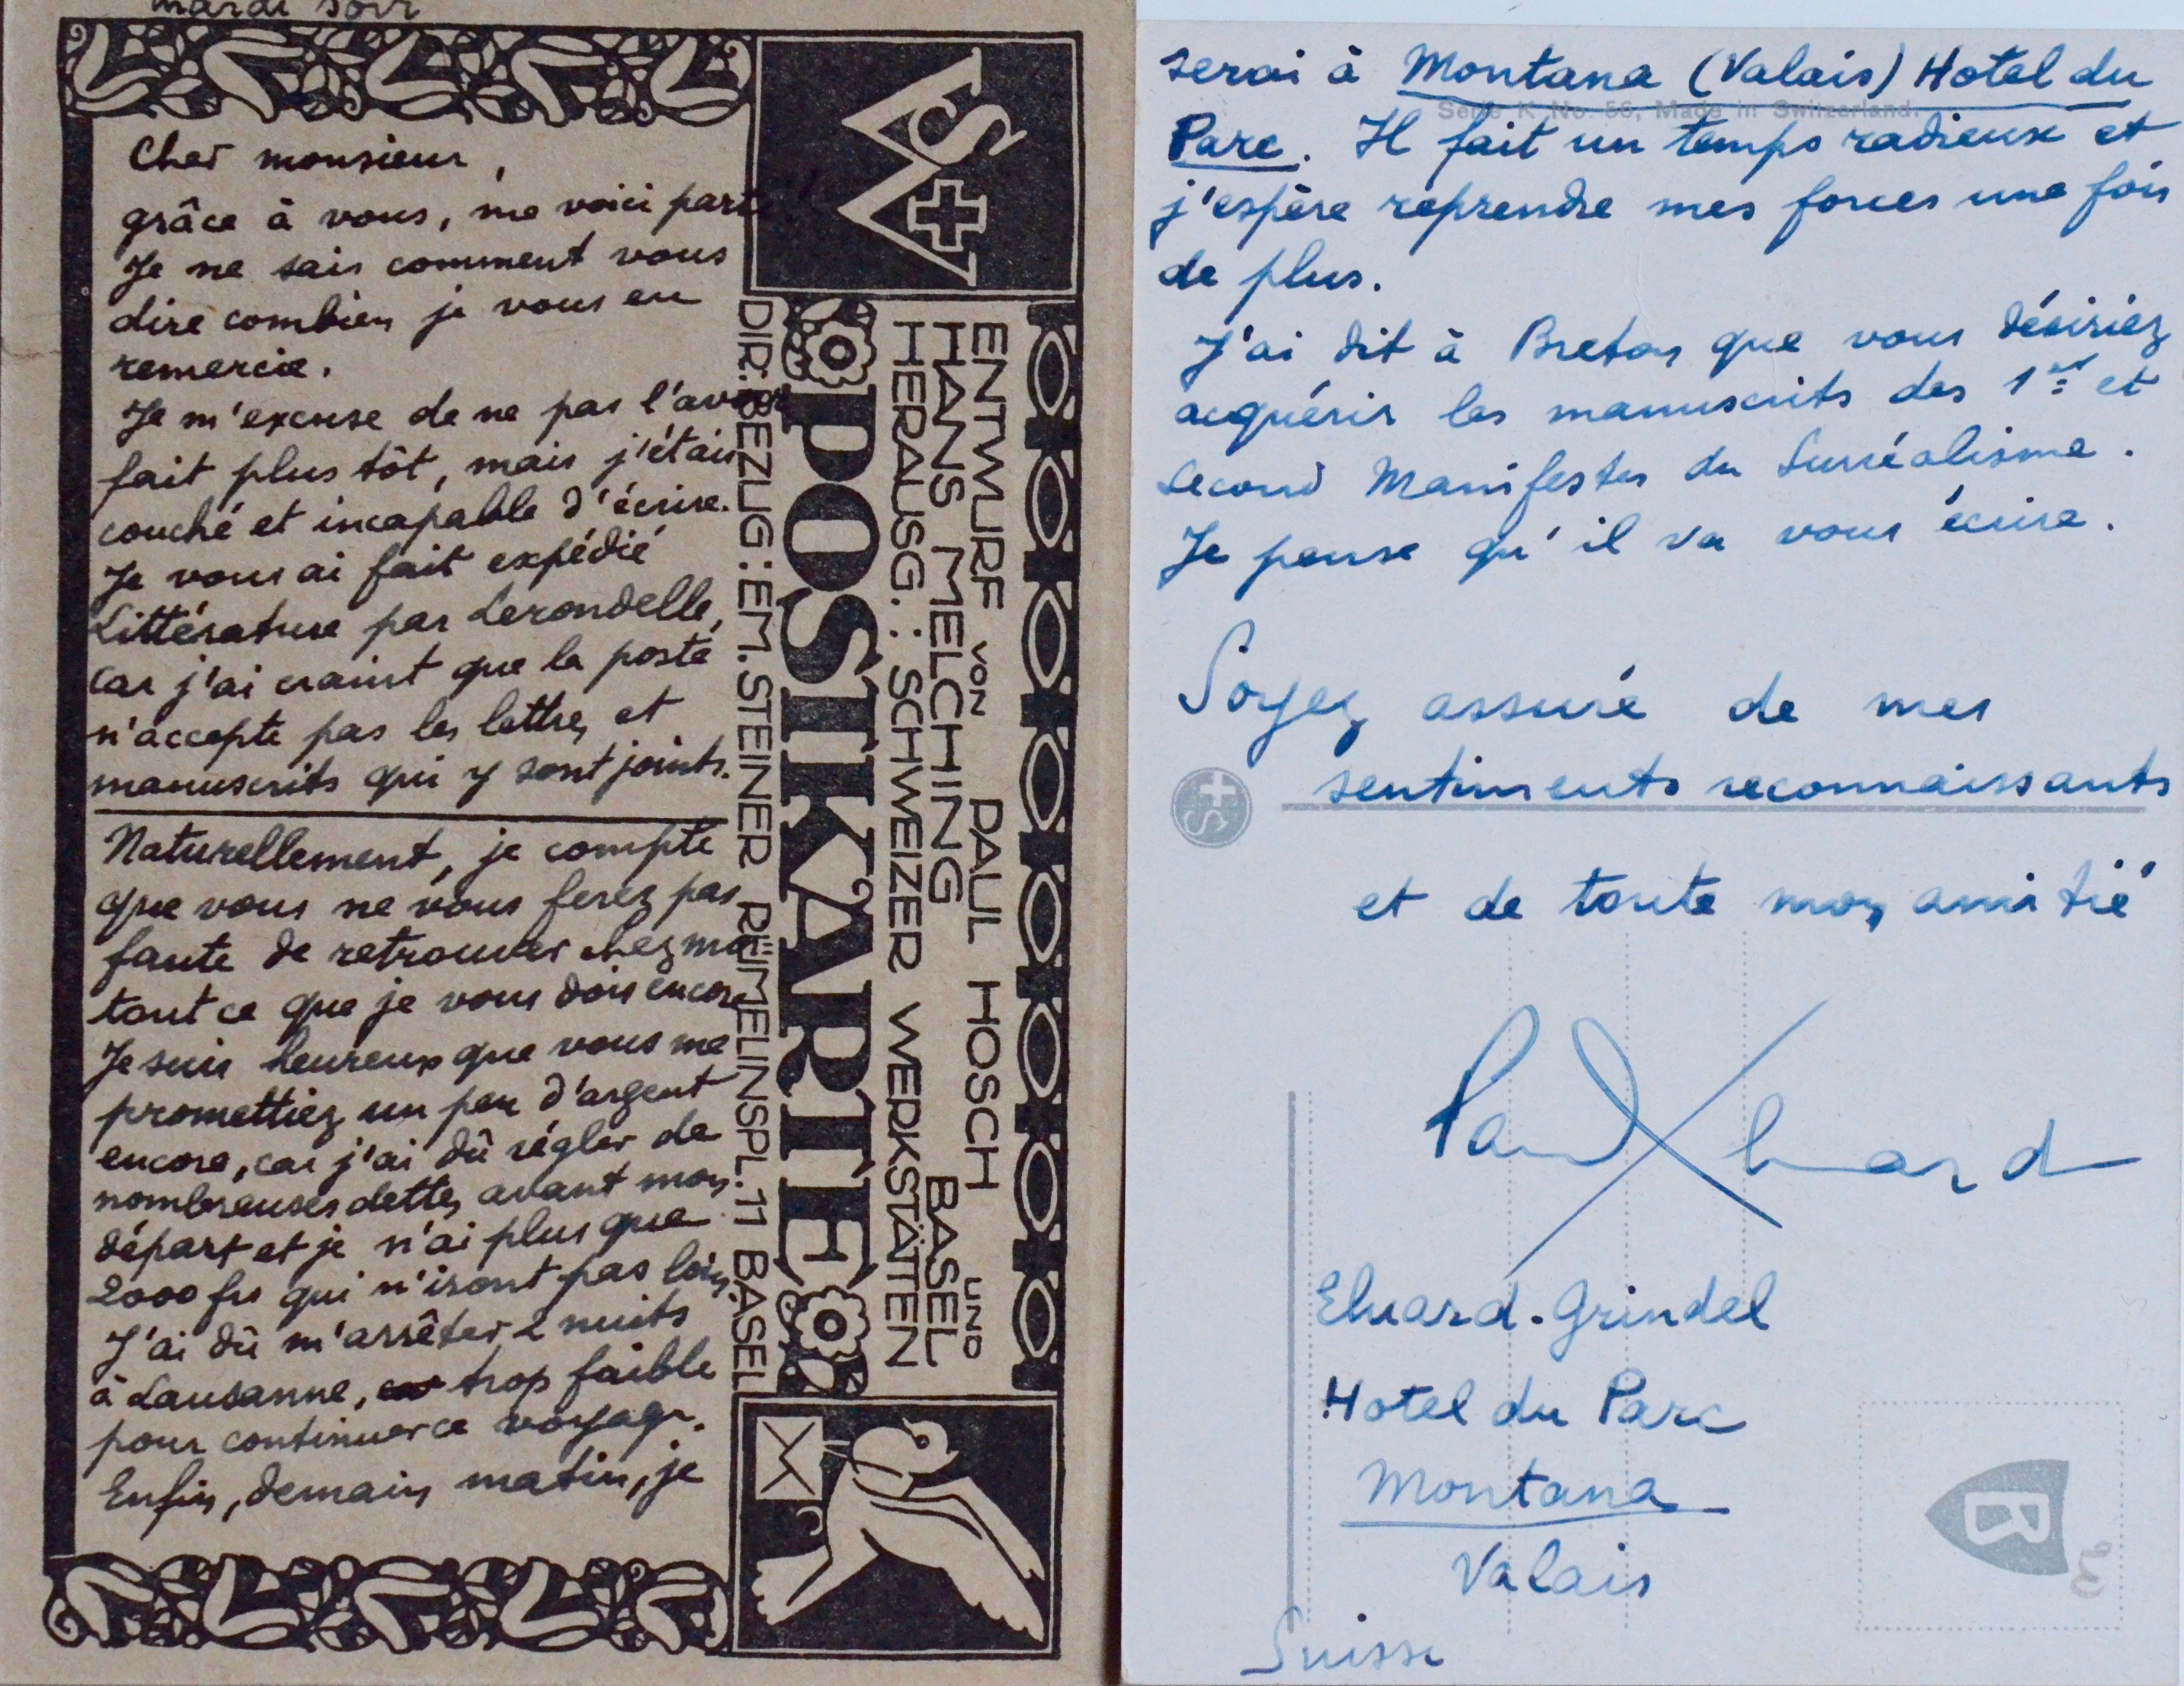 mardi soir
Cher monsieur,
grâce à vous, me voici parti
Je ne sais comment vous
dire combien je vous en
remercie.
Je m'excuse de ne pas l'avoir
fait plus tôt, mais j'étais
couché et incapable d'écrire.
Je vous ai fait expédié
Littérature par Lerondelle,
car j'ai craint que la poste
n'accepte pas les lettres et
manuscrits qui y sont joints.
Naturellement, je compte
que vous ne vous ferez pas
faute de retrouver chez moi
tout ce que je vous dois encore
Je suis heureux que vous me
promettiez un peu d'argent
encore, car j'ai dû régler de
nombreuses dettes avant mon
départ et je n'ai plus que
2000 frs qui n'iront pas loin.
J'ai dû m'arrêter 2 nuits
à Lausanne, trop faible
pour continuer ce voyage.
Enfin, demain matin, je
SW
ENTWURF VON PAUL HOSCH UND
HANS MELCHING BASEL
HERAUSG.: SCHWEIZER WERKSTÄTTEN
POSTKARTE
DIR. BEZUG: EM. STEINER RÜMELINSPL. 11 BASEL
serai à Montana (Valais) Hotel du
Serie K No. 56, Made in Switzerland.
Parc. Il fait un temps radieux et
j'espère reprendre mes forces une fois
de plus.
J'ai dit à Breton que vous désiriez
acquérir les manuscrits des 1er et
Second Manifestes du Surréalisme.
Je pense qu'il va vous écrire.
Soyez assuré de mes
sentiments reconnaissants
et de toute mon amitié
Paul Eluard
Eluard-Grindel
Hotel du Parc
Montana
Valais
Suisse
B